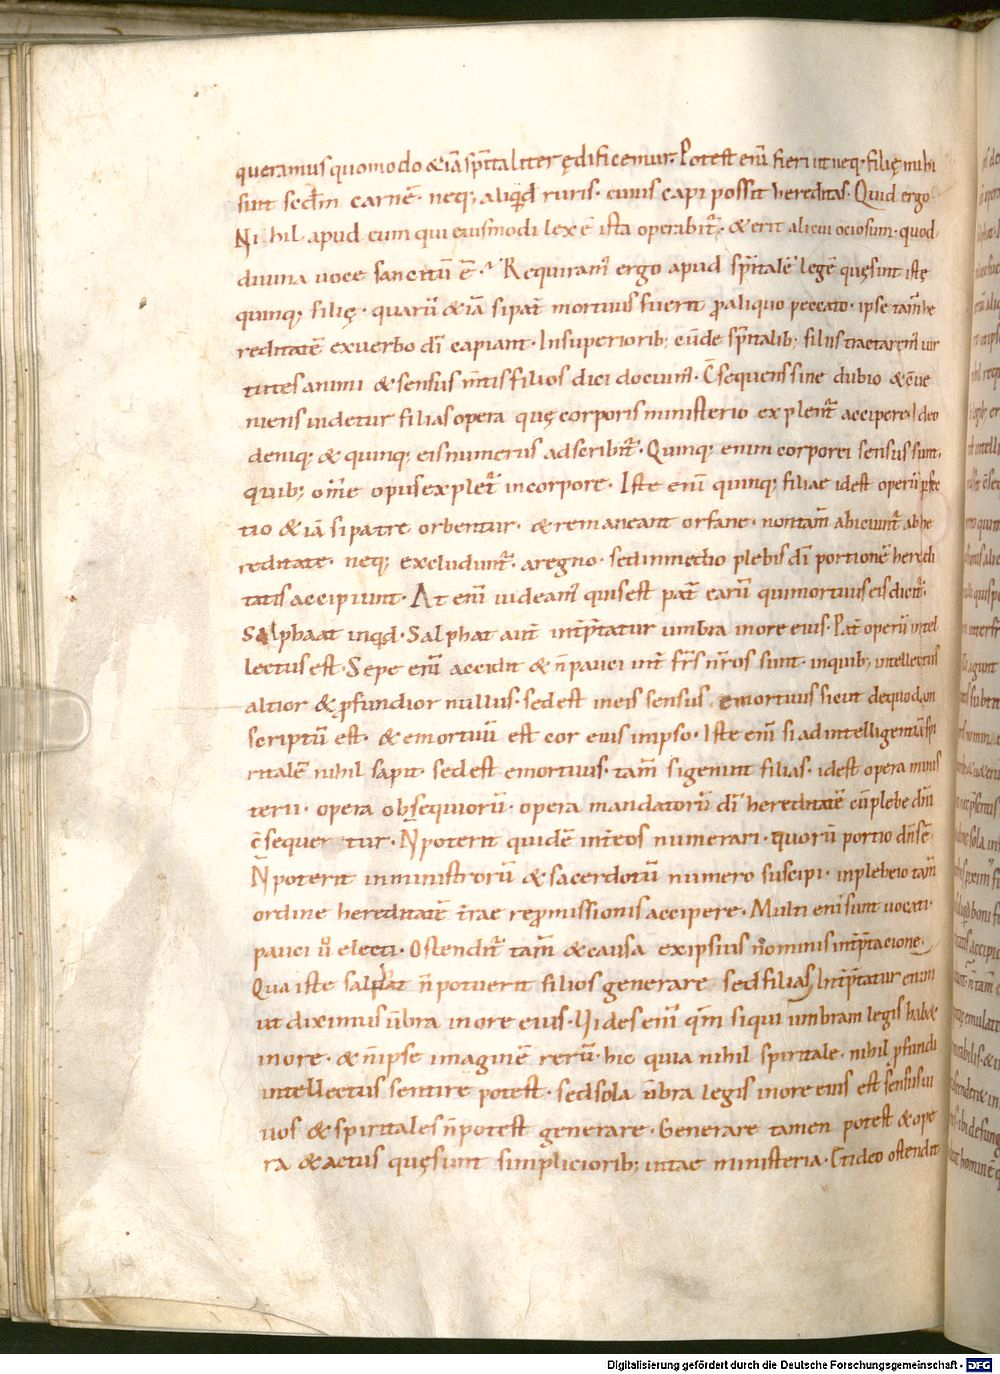 queramus quomodo &iā sp̄italiter ędificemur. Potest enī fieri ut neq; filię mihi
sint scd̄m carnē· neq; aliqd̄ ruris· cuius capi possit hereditas· Quid ergo
Nihil· apud eum qui eiusmodi lex ē ista operabit̄· & erit alicui ociosum· quod
diuina uoce sancitū ē· Requiram̄ ergo apud sp̄italē legē quę sint istę
quinq; filię· quarū &iā si pat̄ mortuus fuerit p aliquo peccato· ipse tam̄ he
reditatē ex uerbo dī capiant· In superiorib; eūde sp̄italib; filiis tractarem̄ uir
tutes animi & sensus m̄tis filios dici docuim̄· C̄sequens sine dubio & c̄ue
niens uidetur filias opera quę corporis ministerio explent̄ accipere· Ideo
deniq; & quinq; eis numerus adscribit̄· Quinq; enim corporei sensus sunt·
quib; om̄e opus explet̄ in corpore· Iste enī quinq; filiae idest operū pfec
tio &iā si patre orbentur· & remaneant orfane· non tam̄ abiciunt̄ ab he
reditate· neq; excludunt̄· a regno· sed in medio plebis dī portionē heredi
tatis accipiunt· At enī uideam̄ quis est pat̄ earū qui mortuus eis dicit̄·
Salphaat inqd̄· Salphat aut̄ int̄ptatur umbra in ore eius· Pat̄ operū intel
lectus est· Sepe enī accidit & n̄ pauci int̄ fr̄s nr̄os sunt· in quib; intellectus
altior & pfundior nullus· sed est in eis sensus emortuus sicut de quodam
scriptū est· & emortuū est cor eius in ipso· Iste enī si ad intelligentiā spi
ritalē nihil sapit sed est emortuus· tam̄ si genuit filias· idest opera minis
terii· opera obsequiorū· opera mandatorū dī hereditatē cū plebe dn̄i
c̄sequer tur· N̄ poterit quidē int̄ eos numerari· quorū portio dn̄s ē·
N̄ poterit in ministrorū & sacerdotū numero suscipi· in plebeio tam̄
ordine hereditatē t̄rae repmissionis accipere· Multi enī sunt uocati·
pauci u̇ electi· Ostendit̄ tam̄ & causa ex ipsius nominis int̄ptacione·
Qua iste salphat n̄ potuerit filios generare· sed filias Int̄ptatur enim
ut diximus ūbra in ore eius· Uides enī qm̄ si qui umbram legis hab&
in ore· & n̄ ipse imaginē rerū· hic quia nihil spiritale· nihil pfundi
intellectus sentire potest· sed sola ūbra legis in ore eius est sensus ui
uos & spiritales n̄ potest generare· Generare tamen potest & ope
ra & actus quę sunt simpliciorib; uitae ministeria· Et ideo ostendit
Digitalisierung gefördert durch die Deutsche Forschungsgemeinschaft - DFG